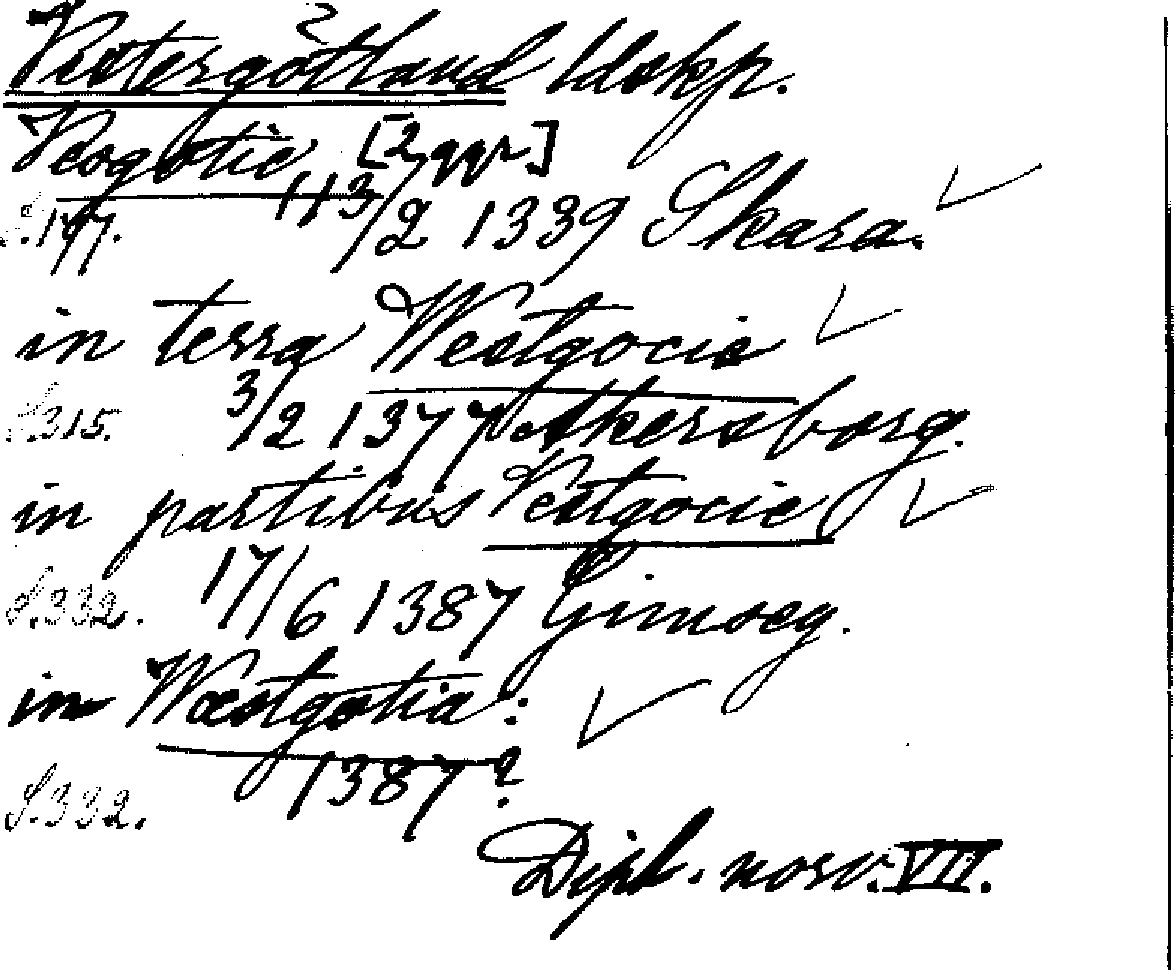 Västergötland ldskp.
Vesgotie [2 ggr]
S.197. 13/2 1339 Skara.
in terra Westgocie
S.315. 3/2 1377 Akersborg.
in partibus Vestgocie
S.332. 17/6 1387 Gimsøy.
in Wæstgotia:
S.332. 1387?
Dipl. norv. VII.